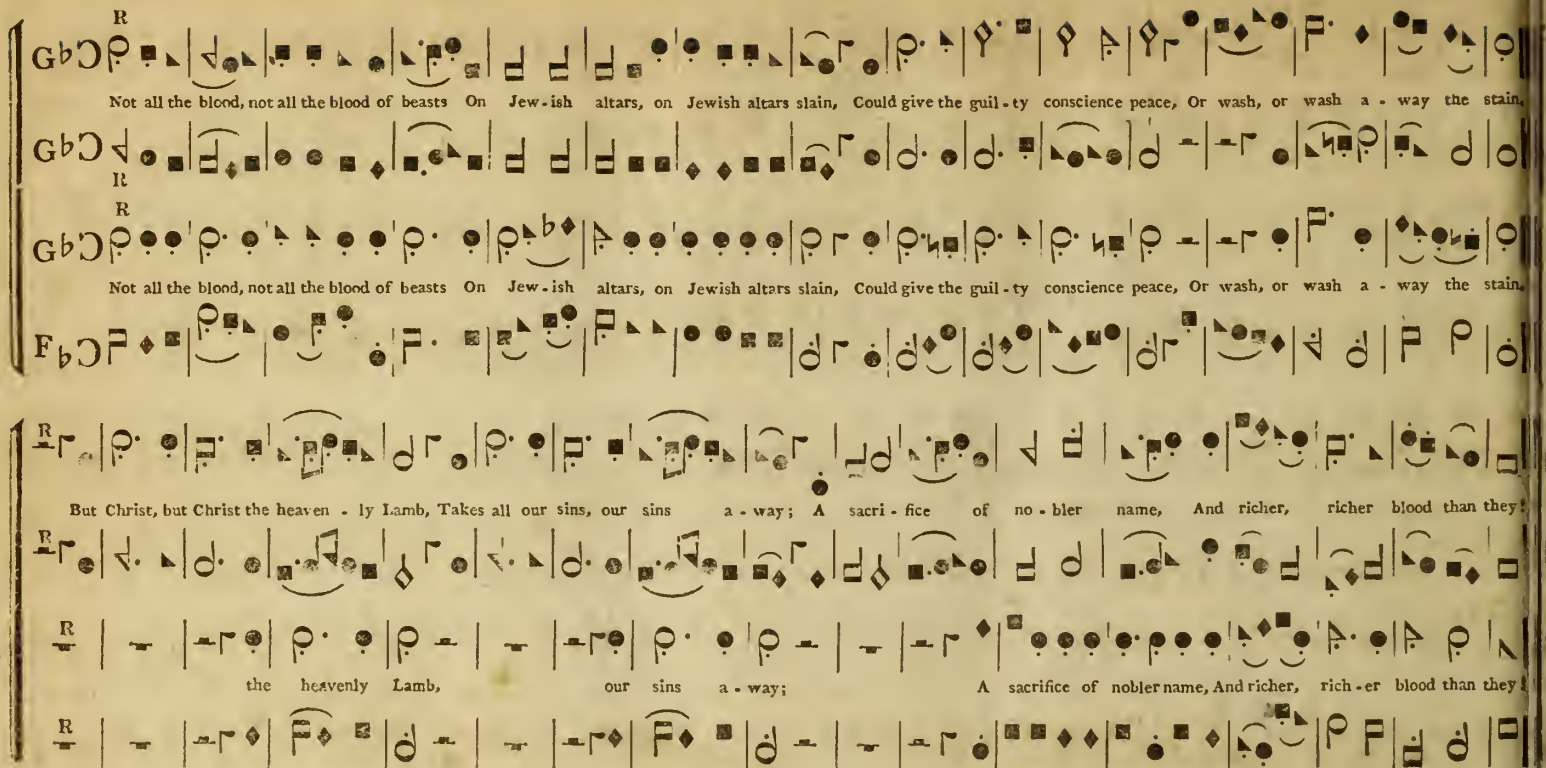 R
G♭Ɔ
Not all the blood, not all the blood of beasts On Jew-ish altars, on Jewish altars slain, Could give the guil-ty conscience peace, Or wash, or wash a-way the stain,
G♭Ɔ
R
R
G♭Ɔ
Not all the blood, not all the blood of beasts On Jew-ish altars, on Jewish altars slain, Could give the guil-ty conscience peace, Or wash, or wash a-way the stain,
F♭Ɔ
R
But Christ, but Christ the heaven-ly Lamb, Takes all our sins, our sins a-way; A sacri-fice of no-bler name, And richer, richer blood than they!
R
R
the heavenly Lamb, our sins a-way; A sacrifice of nobler name, And richer, rich-er blood than they!
R